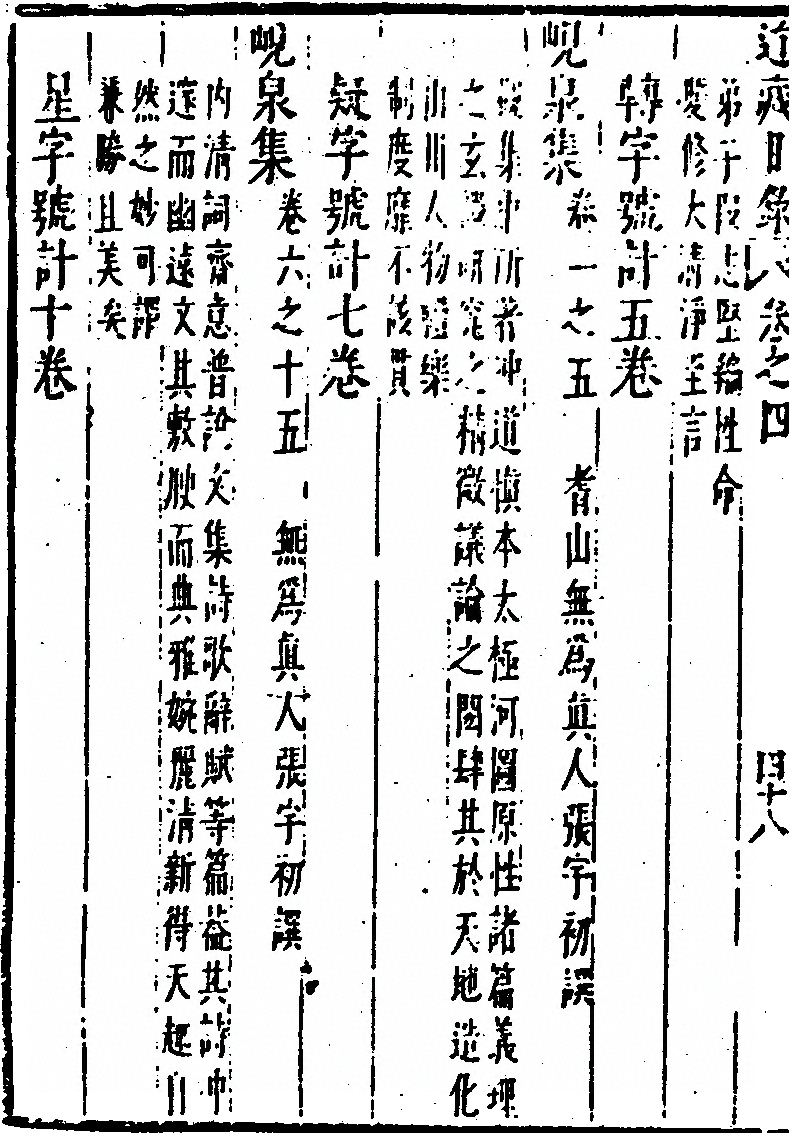 道藏目錄 卷之四 四十八
弟子段志堅編性命
雙修大清淨至言
轉字號計五卷
峴泉集 卷一之五 耆山無爲真人張宇初譔
集中所著冲道慎本太極河圖原性諸篇義理
之玄 研究之精微議論之閎肆其於天地造化
山川人物禮樂
制度靡不該貫
疑字號計七卷
峴泉集 卷六之十五 無爲真人張宇初譔
內清詞齋意普說文集詩歌辭賦等篇葢其詩冲
邃而幽遠文其敷腴而典雅婉麗清新得天趣自
然之妙可謂
兼勝且美矣
星字號計十卷